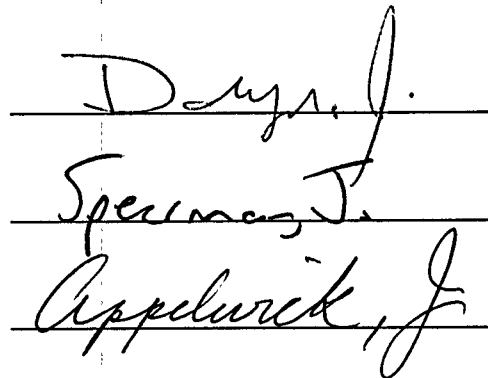 Dwyer, J.
Spearman, J.
Appelwick, J